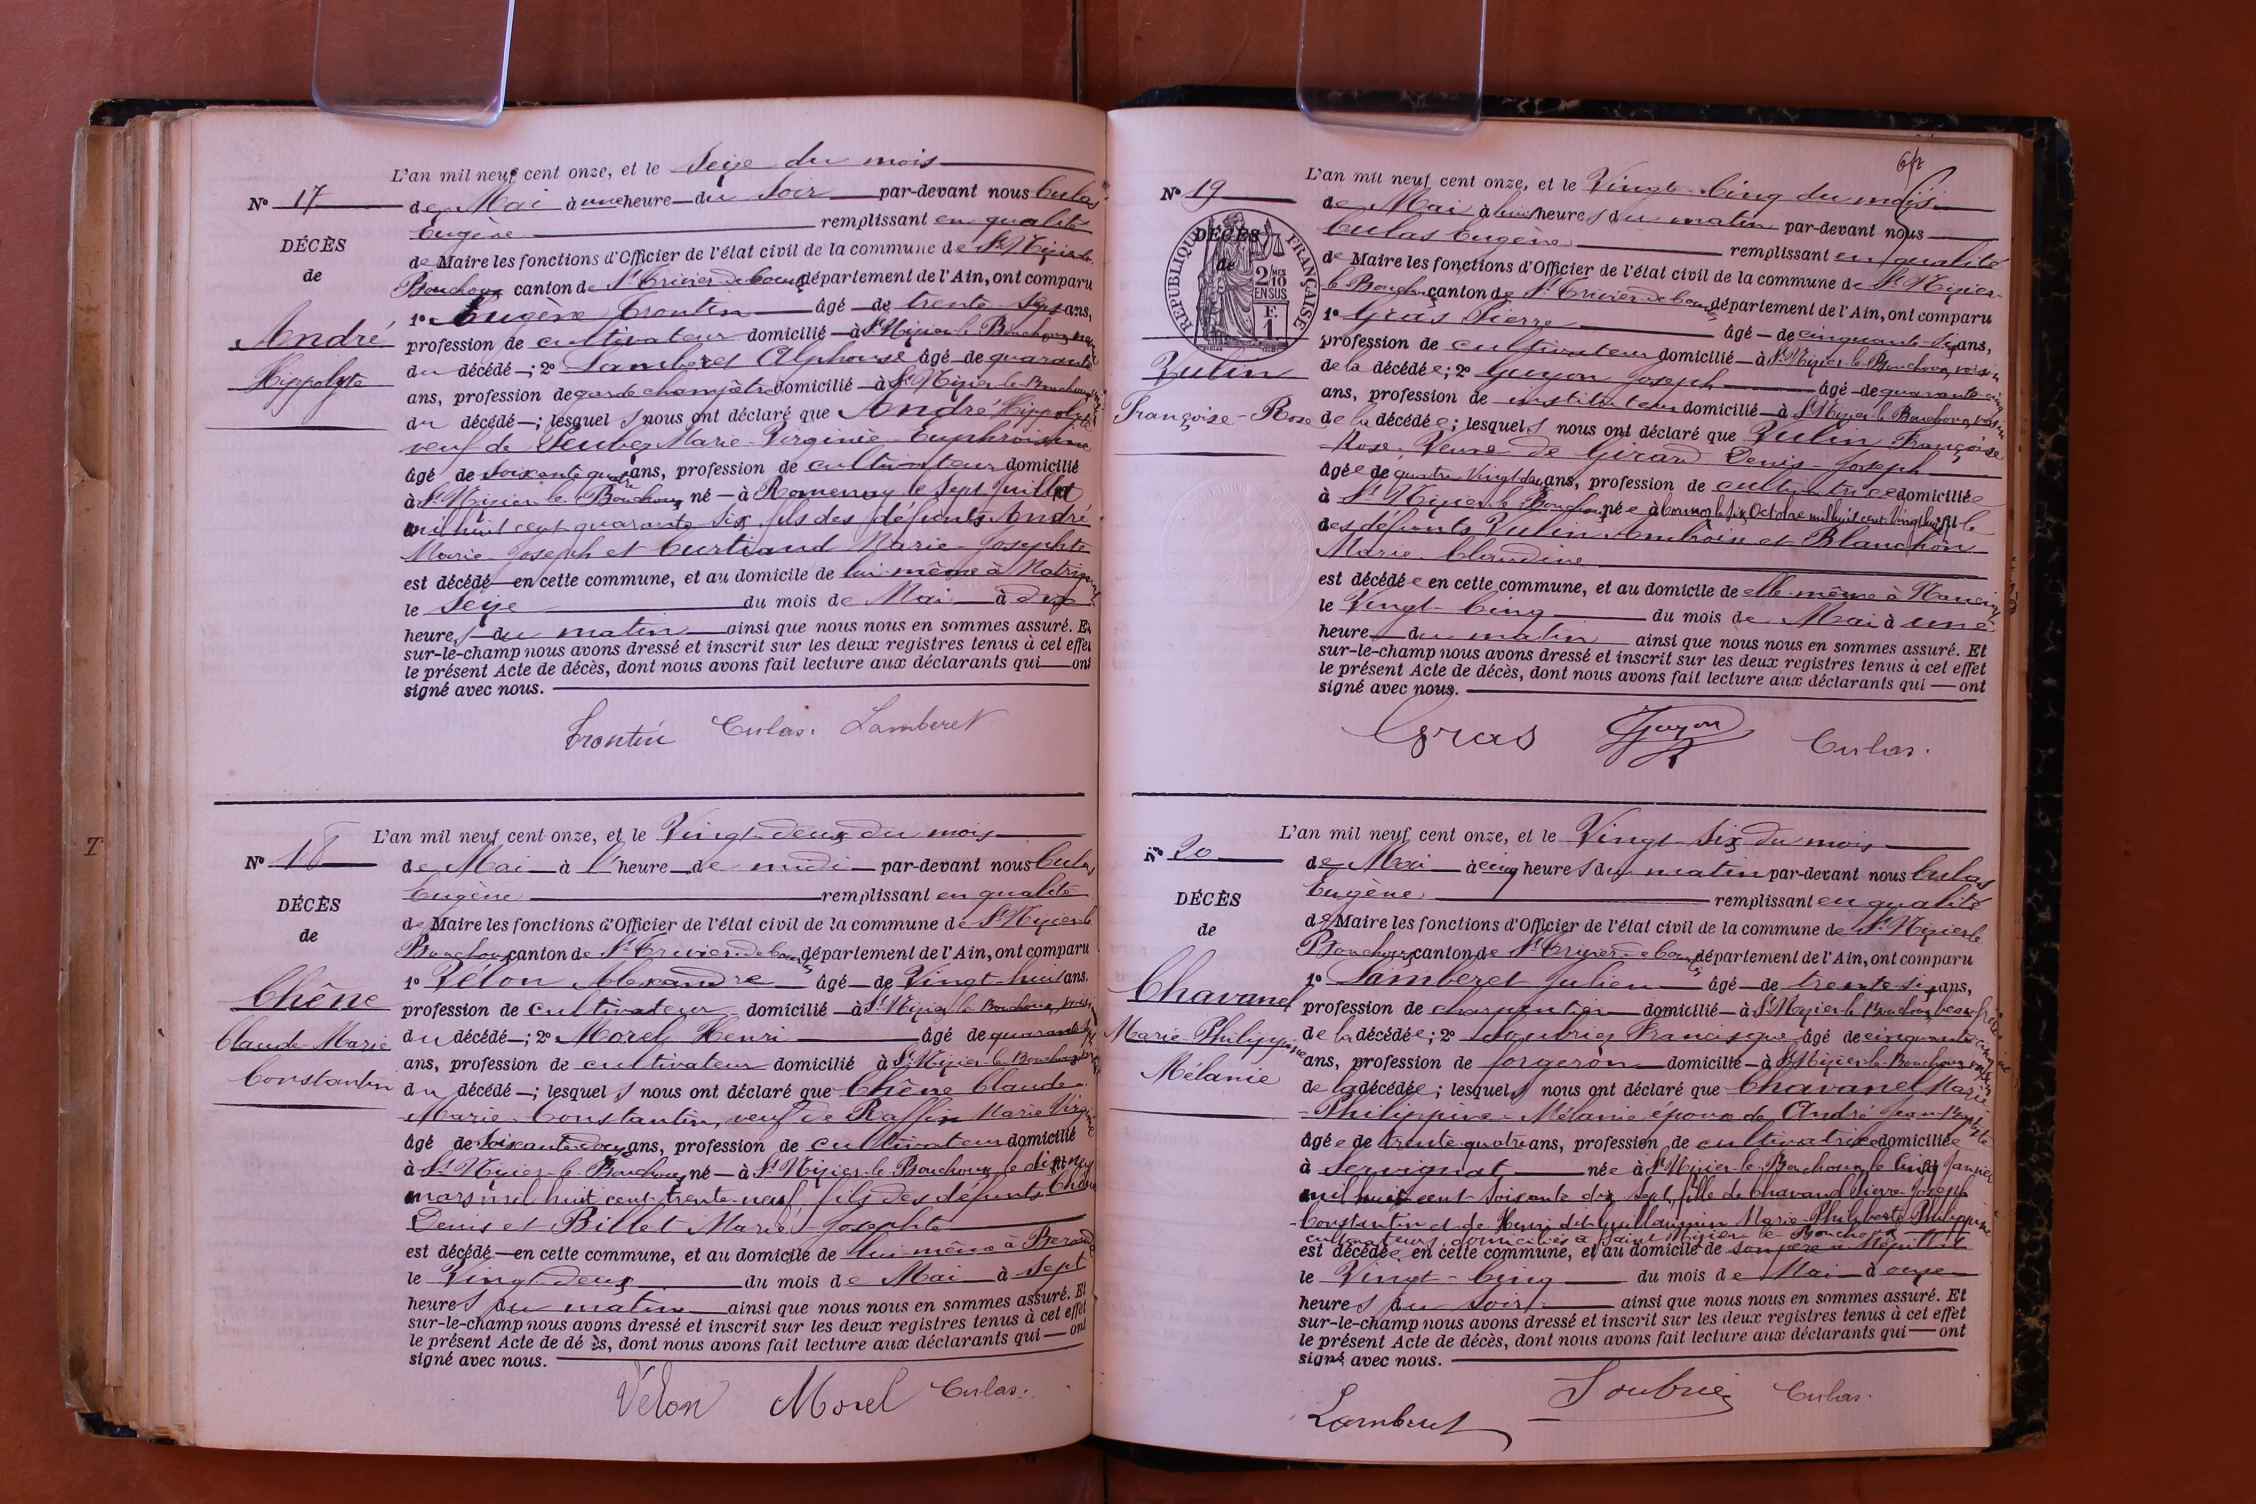 L'an mil neuf cent onze, et le Seize du mois
N° 17
de Mai à une heure du Soir par-devant nous Culas
Eugène remplissant en qualité
DÉCÈS
de
André
Hippolyte
de Maire les fonctions d'Officier de l'état civil de la commune de St Nizier le
Bouchoux canton de St Trivier de Courtes département de l'Ain, ont comparu
1° Eugène Trontin âgé de trente-sept ans,
profession de cultivateur domicilié à St Nizier le Bouchoux
du décédé ; 2° Lamberet Alphonse âgé de quarante
ans, profession de garde champêtre domicilié à St Nizier le Bouchoux
du décédé ; lesquels nous ont déclaré que André Hippolyte
veuf de Marie Virginie
âgé de soixante quatre ans, profession de cultivateur domicilié
à St Nizier le Bouchoux né à Romenay le sept Juillet
mil huit cent quarante six, fils des défunts André
Marie Joseph et Curtiaud Marie-Josephte
est décédé en cette commune, et au domicile de lui-même à
le Seize du mois de Mai à dix
heures du matin ainsi que nous nous en sommes assuré. Et
sur-le-champ nous avons dressé et inscrit sur les deux registres tenus à cet effet
le présent Acte de décès, dont nous avons fait lecture aux déclarants qui ont
signé avec nous.
Trontin Culas. Lamberet
L'an mil neuf cent onze, et le Vingt-deux du mois
N° 18
de Mai à l'heure de midi par-devant nous Culas
Eugène remplissant en qualité
DÉCÈS
de
Chêne
Claude-Marie
Constantin
de Maire les fonctions d'Officier de l'état civil de la commune de St Nizier le
Bouchoux canton de St Trivier de Courtes département de l'Ain, ont comparu
1° Vélon Alexandre âgé de Vingt-huit ans.
profession de cultivateur domicilié à St Nizier le Bouchoux, voisin
du décédé ; 2° Morel Henri âgé de quarante
ans, profession de cultivateur domicilié à St Nizier le Bouchoux
du décédé ; lesquels nous ont déclaré que Chêne Claude
Marie Constantin, veuf de Raffin Marie Virginie
âgé de soixante douze ans, profession de cultivateur domicilié
à St Nizier le Bouchoux né à St Nizier le Bouchoux le dix neuf
mars mil huit cent trente-neuf, fils des défunts Chêne
Denis et Billet Marie-Josephte
est décédé en cette commune, et au domicile de lui-même à
le Vingt-deux du mois de Mai à Sept
heures du matin ainsi que nous nous en sommes assuré. Et
sur-le-champ nous avons dressé et inscrit sur les deux registres tenus à cet effet
le présent Acte de dé ès, dont nous avons fait lecture aux déclarants qui ont
signé avec nous.
Vélon Morel Culas.
L'an mil neuf cent onze, et le Vingt-Cinq du mois
N° 19
de Mai à huit heures du matin par-devant nous
Culas Eugène remplissant en qualité
DÉCÈS
de
RÉPUBLIQUE FRANÇAISE
2/10 EN SUS
F. 1
Vulin
Françoise-Rose
de Maire les fonctions d'Officier de l'état civil de la commune de St Nizier
le Bouchoux canton de St Trivier de Courtes département de l'Ain, ont comparu
1° Gras Pierre âgé de cinquante-six ans,
profession de cultivateur domicilié à St Nizier le Bouchoux, voisin
de la décédée ; 2° Guyon Joseph âgé de quarante-cinq
ans, profession de instituteur domicilié à St Nizier le Bouchoux, voisin
de la décédée ; lesquels nous ont déclaré que Vulin Françoise
Rose, Veuve de Girard Denis-Joseph
âgée de quatre Vingt deux ans, profession de cultivatrice domiciliée
à St Nizier le Bouchoux née à Cormoz le six Octobre mil huit cent vingt huit, fille
des défunts Vulin Ambroise et Blanchon
Marie Claudine
est décédée en cette commune, et au domicile de elle-même à
le Vingt-Cinq du mois de Mai à une
heure du matin ainsi que nous nous en sommes assuré. Et
sur-le-champ nous avons dressé et inscrit sur les deux registres tenus à cet effet
le présent Acte de décès, dont nous avons fait lecture aux déclarants qui ont
signé avec nous.
Gras Guyon Culas.
L'an mil neuf cent onze, et le Vingt-Six du mois
N° 20
de Mai à cinq heures du matin par-devant nous Culas
Eugène remplissant en qualité
DÉCÈS
de
Chavanel
Marie-Philippine
Mélanie
de Maire les fonctions d'Officier de l'état civil de la commune de St Nizier le
Bouchoux canton de St Trivier de Courtes département de l'Ain, ont comparu
1° Lamberet Julien âgé de trente-six ans,
profession de charpentier domicilié à St Nizier le Bouchoux, beau frère
de la décédée ; 2° Soubrier Francisque âgé de cinquante cinq
ans, profession de forgeron domicilié à St Nizier le Bouchoux
de la décédée ; lesquels nous ont déclaré que Chavanel Marie
Philippine-Mélanie épouse de André Jean-Baptiste
âgée de trente-quatre ans, profession de cultivatrice domiciliée
à Servignat née à St Nizier le Bouchoux le Janvier
mil huit cent soixante dix sept, fille de Chavanel Pierre-Joseph
Constantin et de Henri dit Guillaumin Marie-Philiberte Philippine
cultivateurs, domiciliés à Saint Nizier le Bouchoux
est décédée en cette commune, et au domicile de son père à
le Vingt-Cinq du mois de Mai à onze
heures du soir ainsi que nous nous en sommes assuré. Et
sur-le-champ nous avons dressé et inscrit sur les deux registres tenus à cet effet
le présent Acte de décès, dont nous avons fait lecture aux déclarants qui ont
signé avec nous.
Lamberet Soubrier Culas.